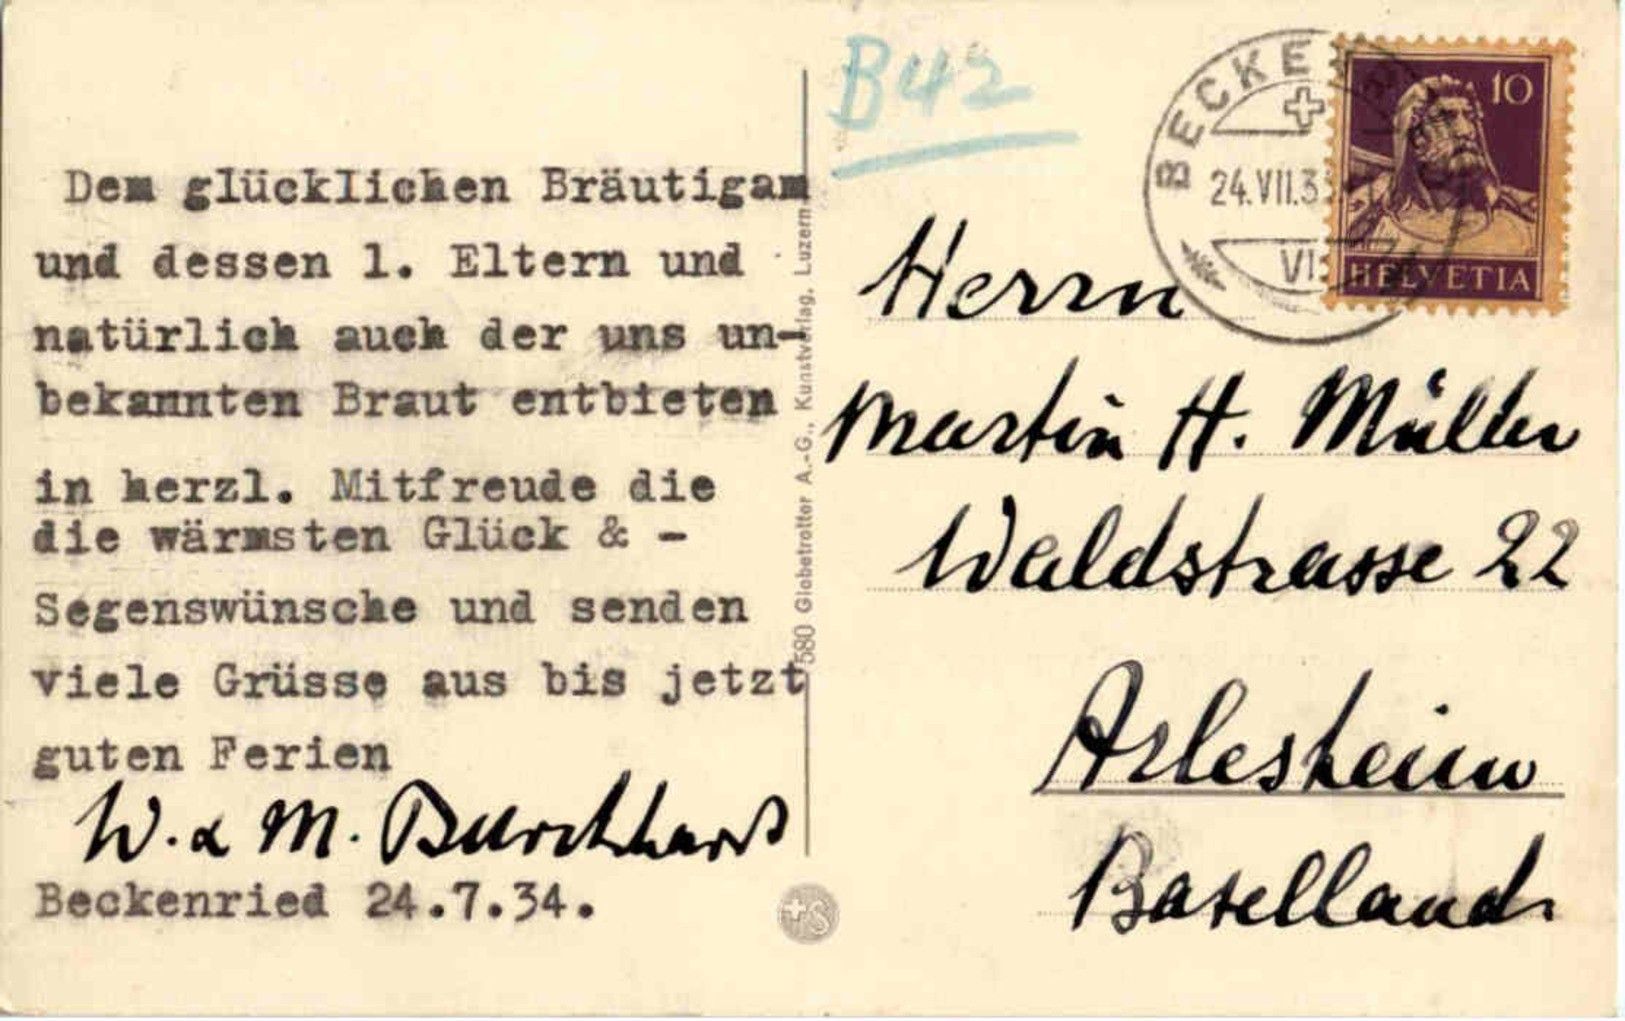 Dem glücklichen Bräutigam
und dessen l. Eltern und
natürlich auch der uns un-
bekannten Braut entbieten
in herzl. Mitfreude die
die wärmsten Glück & -
Segenswünsche und senden
viele Grüsse aus bis jetzt
guten Ferien
W. & M. Burckhardt
Beckenried 24.7.34.
580 Globetrotter A.-G., Kunstverlag, Luzern
+S
B42
BECKE
24.VII.3
VI
10
HELVETIA
Herrn
Martin H. Müller
Waldstrasse 22
Arlesheim
Baselland.